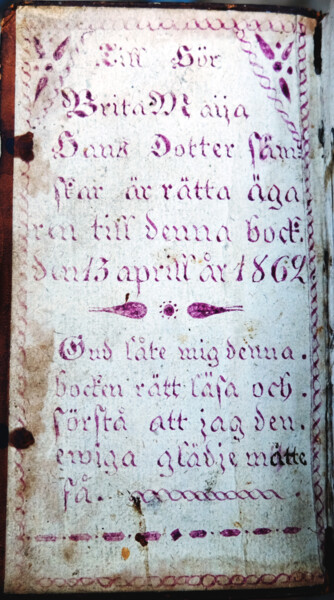 Till Hör
Brita Maija
Hans Dotter säm
skar är rätta äga
ren till denna bock.
den 13 aprill år 1862
Gud låte mig denna.
bocken rätt läsa och.
förstå att jag den.
ewiga glädje måtte
få.